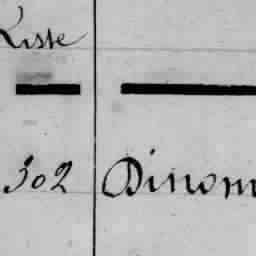 Liste
302 Dinom